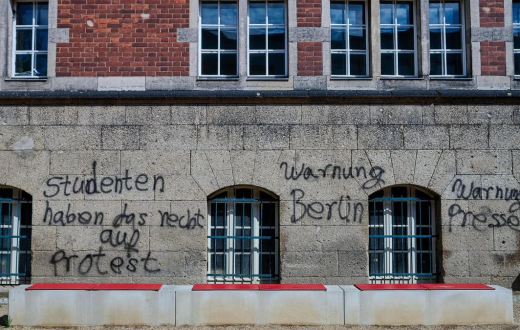 Studenten
haben das recht
auf
Protest
Warnung
Berlin
Warnung
Presse